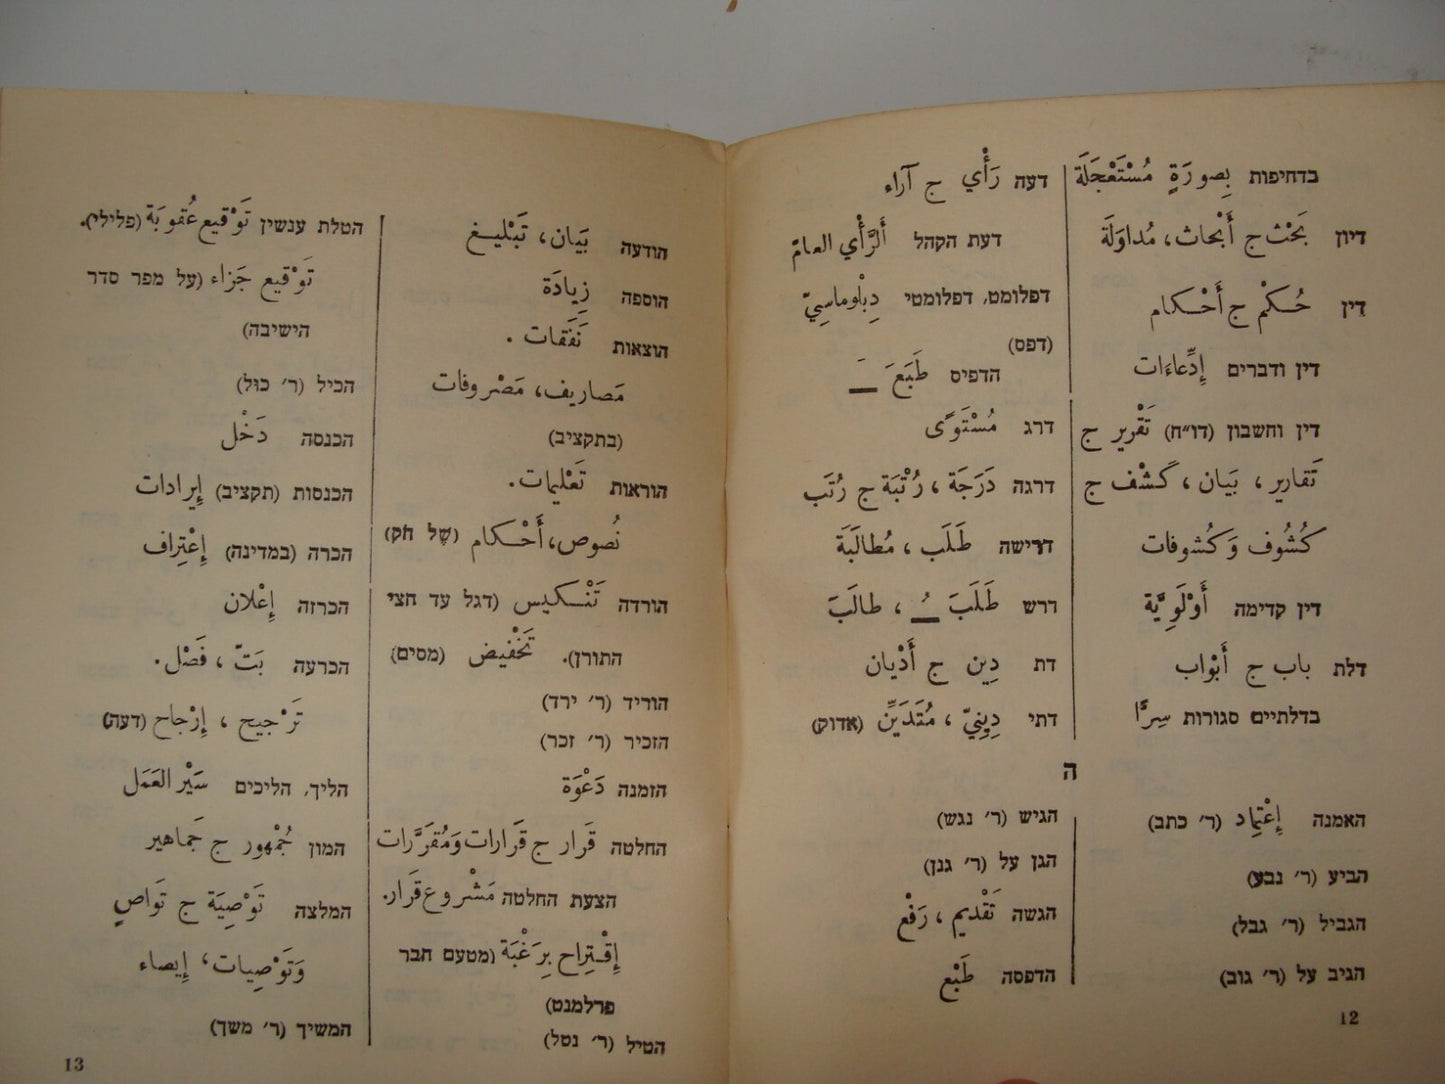 בדחיפות بِصورَةٍ مُسْتَعْجَلَة
דיון بَحْث ج أَبْحاث، مُداوَلَة
דין حُكْم ج أَحْكام
דין ודברים إِدِّعاءَات
דין וחשבון (דו״ח) تَقْرير ج
تَقارير، بَيان، كَشْف ج
كُشُوف وَكُشوفات
דין קדימה أَوْلَوِيَّة
דלת باب ج أَبْواب
בדלתיים סגורות سِرًّا
דעה رَأْي ج آراء
דעת הקהל أَلرَّأْي العامّ
דפלומט, דפלומטי دِبْلوماسِيّ
(דפס)
הדפיס طَبَعَ ـَ
דרג مُسْتَوًى
דרגה دَرَجَة، رُتْبَة ج رُتَب
דרישה طَلَب، مُطالَبَة
דרש طَلَبَ ـُ، طالَبَ
דת دِين ج أَدْيان
דתי دِينِيّ، مُتَدَيِّن (אדוק)
ה
האמנה إِعْتِماد (ר׳ כתב)
הביע (ר׳ נבע)
הגביל (ר׳ גבל)
הגיב על (ר׳ גוב)
הגיש (ר׳ נגש)
הגן על (ר׳ גנן)
הגשה تَقْديم، رَفْع
הדפסה طَبْع
12
הודעה بَيان، تَبْليغ
הוספה زِيادَة
הוצאות نَفَقات.
مَصاريف، مَصْروفات
(בתקציב)
הוראות تَعْليمات.
نُصوص، أَحْكام (של חק)
הורדה تَنْكيس (דגל עד חצי
התורן). تَخْفيض (מסים)
הוריד (ר׳ ירד)
הזכיר (ר׳ זכר)
הזמנה دَعْوَة
החלטה قَرار ج قَرارات وَمُقَرَّرات
הצעת החלטה مَشْروع قَرار.
إِقْتِراح بِرَغْبَة (מטעם חבר
פרלמנט)
הטיל (ר׳ נטל)
הטלת ענשין تَوْقيع عُقوبَة (פלילי).
تَوْقيع جَزاء (על מפר סדר
הישיבה)
הכיל (ר׳ כול)
הכנסה دَخْل
הכנסות (תקציב) إِيرادات
הכרה (במדינה) إِعْتِراف
הכרזה إِعْلان
הכרעה بَتّ، فَصْل.
تَرْجيح، إِرْجاح (דעה)
הליך, הליכים سَيْر العَمَل
המון جُمْهور ج جَماهير
המלצה تَوْصِيَة ج تَواصٍ
وَتَوْصِيات، إِيصاء
המשיך (ר׳ משך)
13